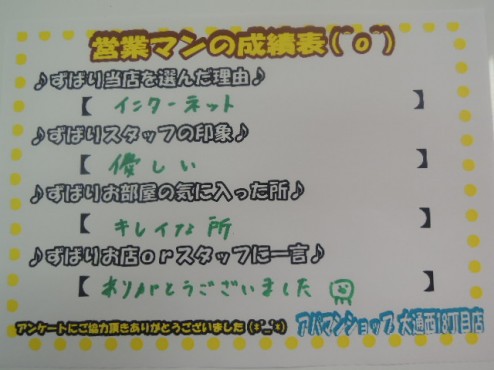 営業マンの成績表(^o^)
♪ずばり当店を選んだ理由♪
【 インターネット 】
♪ずばりスタッフの印象♪
【 優しい 】
♪ずばりお部屋の気に入った所♪
【 キレイな所 】
♪ずばりお店orスタッフに一言♪
【 ありがとうございました 】
アンケートにご協力頂きありがとうございました(*^_^*)
アパマンショップ 大通西18丁目店